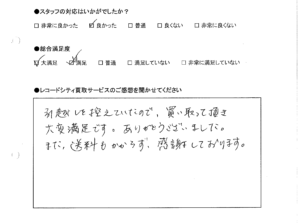 ●スタッフの対応はいかがでしたか?
□ 非常に良かった □ 良かった □ 普通 □ 良くない □ 非常に良くない
●総合満足度
□ 大満足 □ 満足 □ 普通 □ 満足していない □ 非常に満足していない
●レコードシティ買取サービスのご感想を聞かせてください
引越しを控えていたので、買い取って頂き
大変満足です。ありがとうございました。
また、送料もかからず、感謝しております。